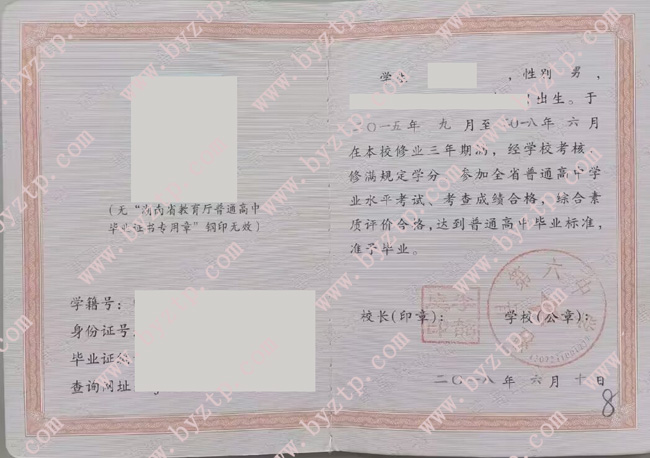 (无“海南省教育厅普通高中
毕业证书专用章”钢印无效)
学籍号:
身份证号
毕业证
查询网址
学 ,性别 男 ,
出生。于
二〇一五年 九 月至 二〇一八年 六 月
在本校修业三年期满,经学校考核,
修满规定学分 参加全省普通高中学
业水平考试、考查成绩合格,综合素
质评价合格,达到普通高中毕业标准,
准予毕业。
校长(印章): 学校(公章):
第六中
二〇一八年 六月十日
8
www.byztp.com